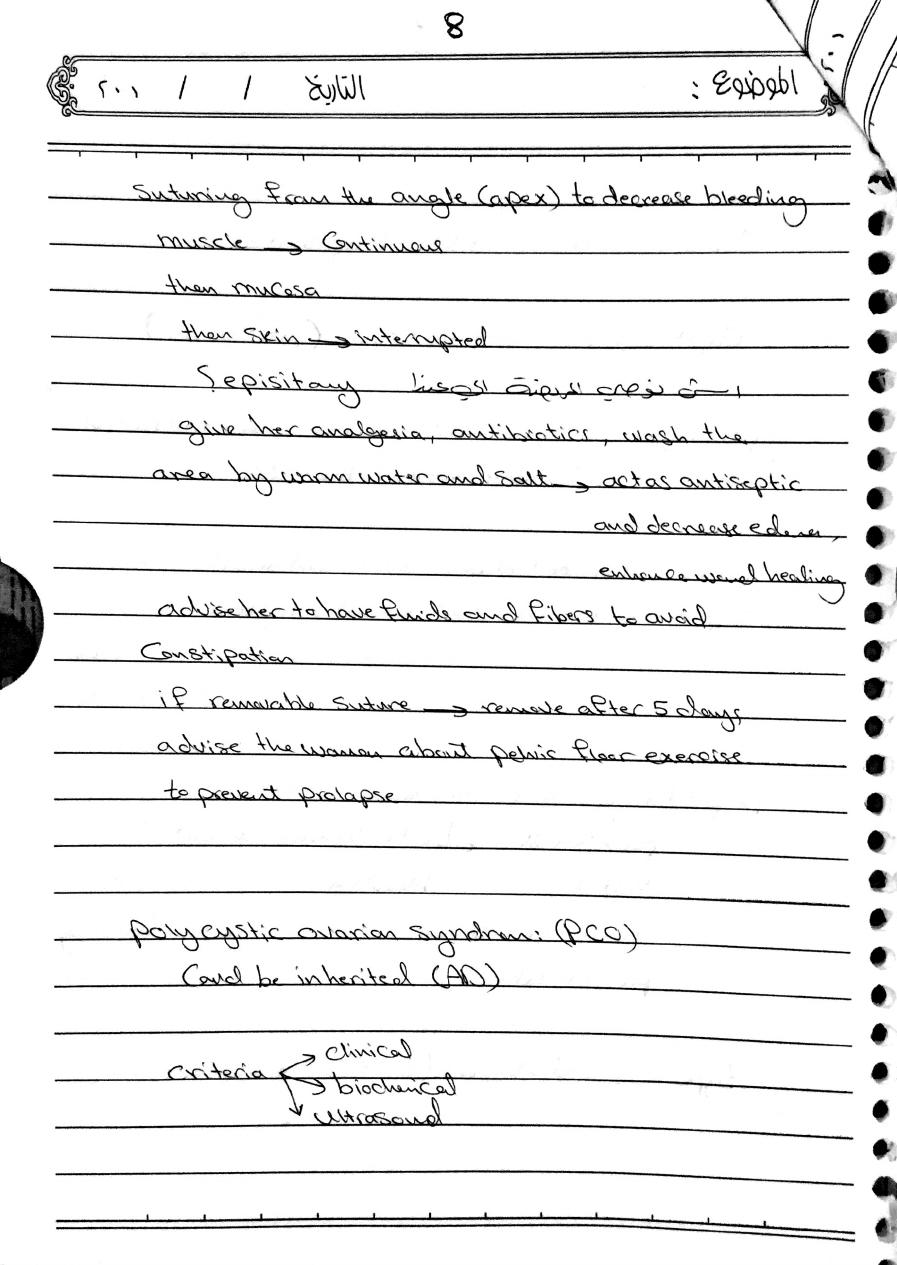 8
الموضوع : التاريخ / / ٢٠٠١
Suturing from the angle (apex) to decrease bleeding
muscle → Continuous
then mucosa
then skin → interrupted
Sepisitary
give her analgesia, antibiotics, wash the
area by warm water and salt → act as antiseptic
and decrease edema,
enhance healing
advise her to have fluids and fibers to avoid
Constipation
if removable suture → remove after 5 days
advise the woman about pelvic floor exercise
to prevent prolapse
polycystic ovarian syndrom: (PCO)
Could be inherited (AD)
criteria → clinical
→ biochemical
→ ultrasound